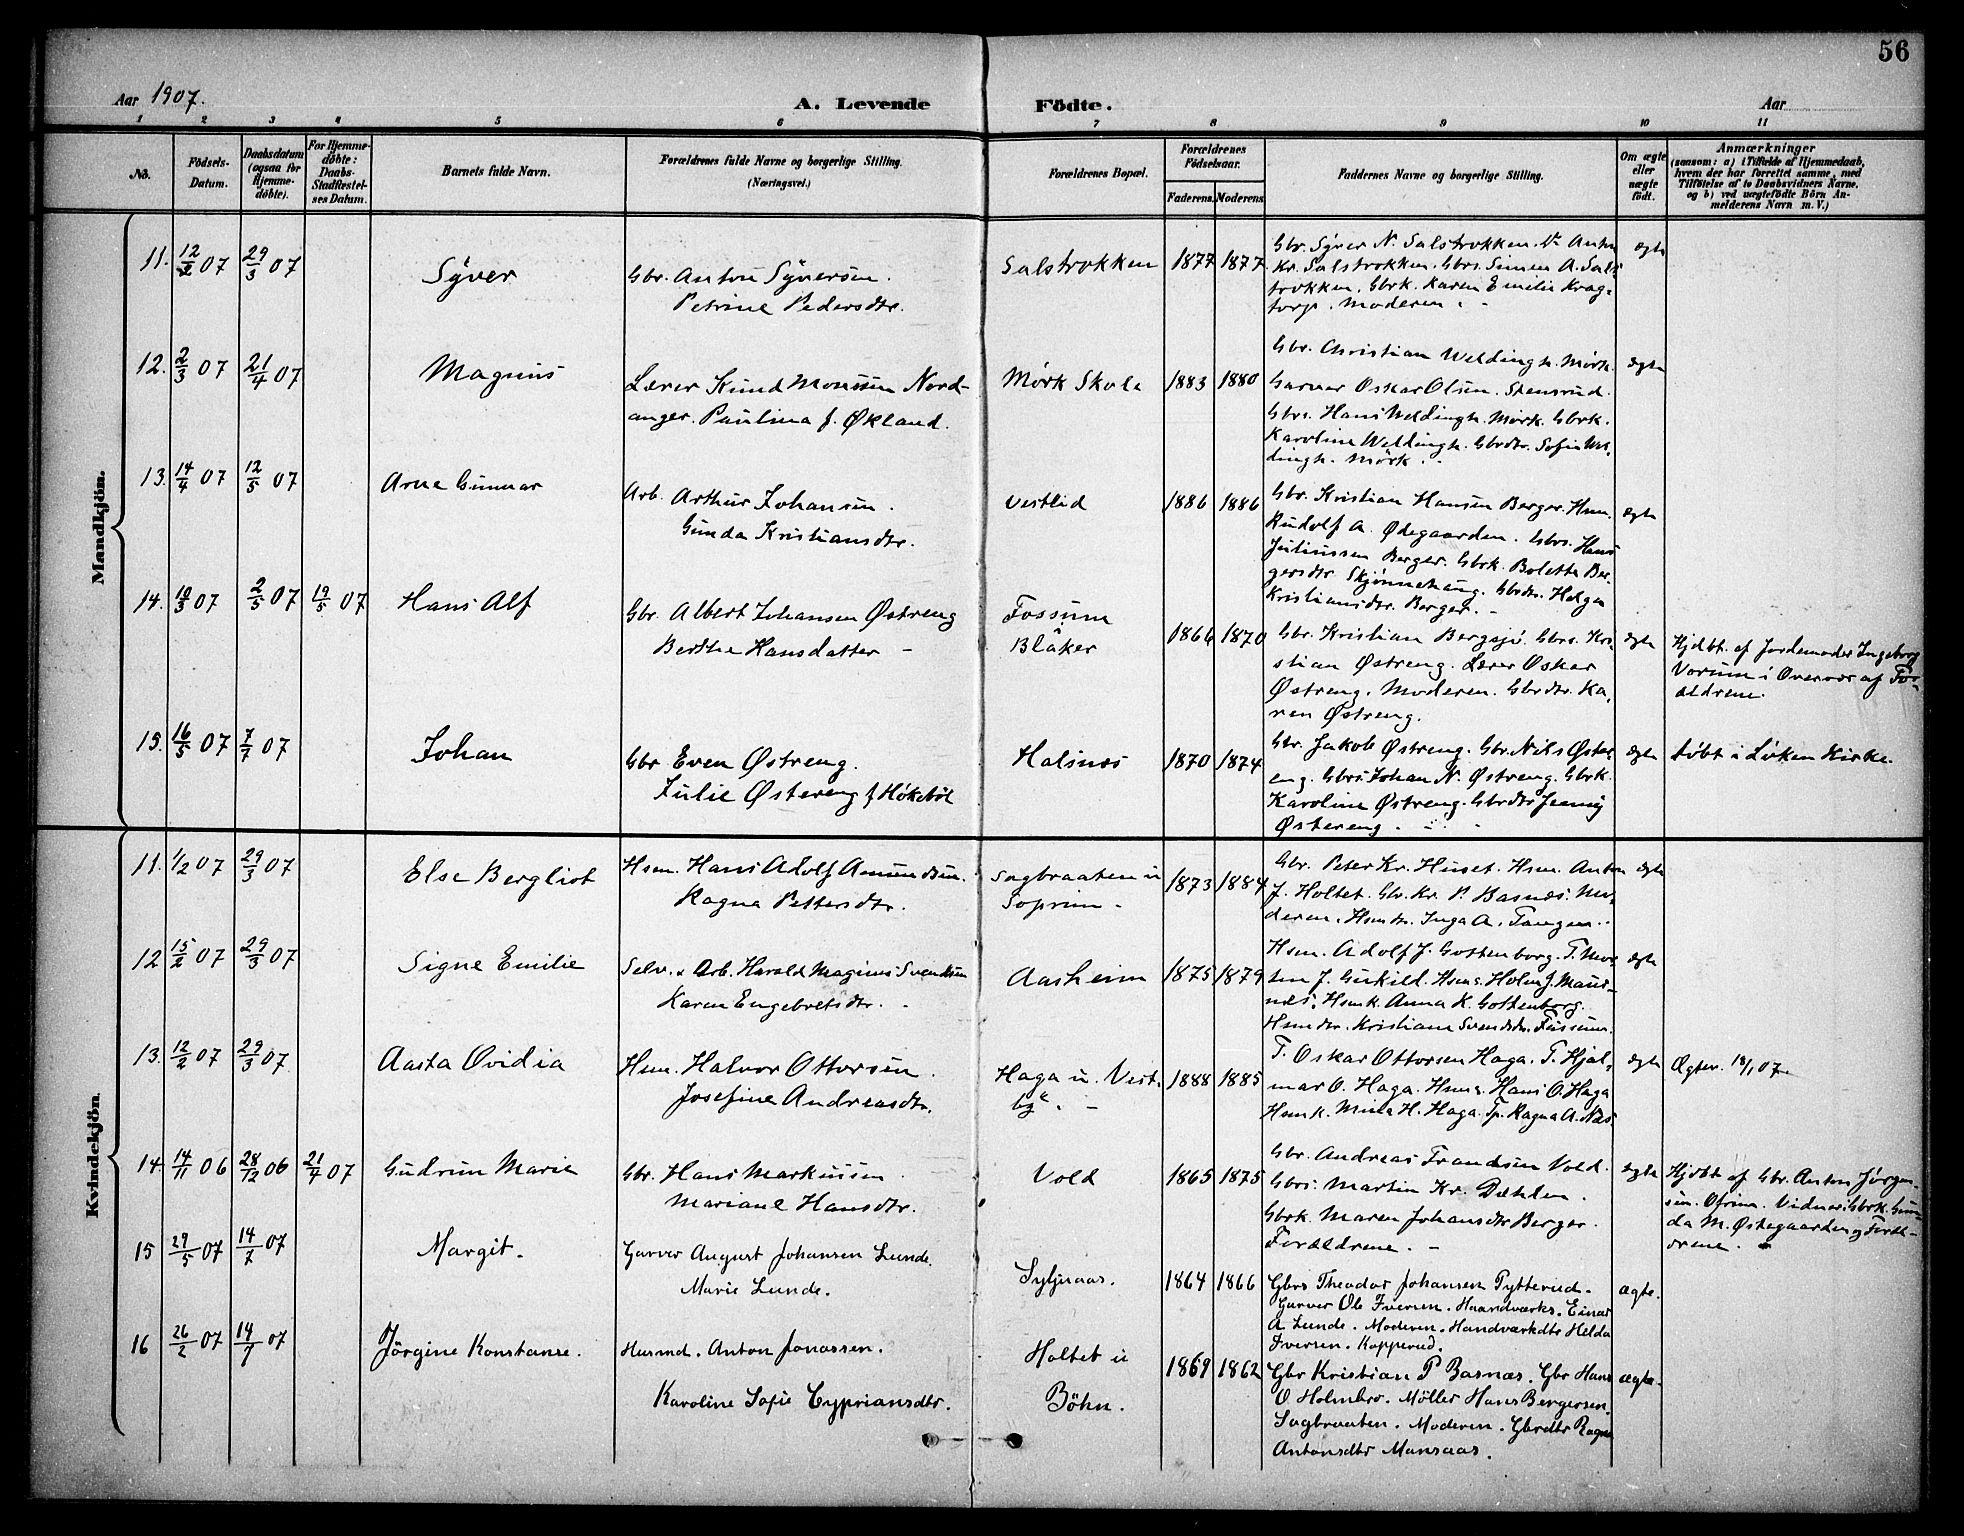 56
Aar 1907.
A. Levende Födte.
Aar
1 2 3 4 5 6 7 8 9 10 11
No.
Födsels-Datum.
Daabsdatum (ogsaa for Hjemme-døbte).
For Hjemme-døbte: Daabs-Stadfæstel-ses Datum.
Barnets fulde Navn.
Forældrenes fulde Navne og borgerlige Stilling. (Næringsvei.)
Forældrenes Bopæl.
Forældrenes Födselsaar.
Faderens. Moderens
Faddernes Navne og borgerlige Stilling.
Om ægte eller uægte födt.
Anmærkninger
(saasom: a) i Tilfælde af Hjemmedaab, hvem der har forrettet samme, med Tilföielse af to Daabsvidners Navne, og b) ved uægtefödte Börn An-melderens Navn m. V.)
Mandkjön.
11. 12/2 07 29/3 07 Syver
Gbr. Anton Syversen.
Petrine Pedersdtr.
Salstrokken 1877 1877
Gbr. Syver N. Salstrokken. Do Anton
Kr. Salstrokken. Gbrs. Simen A. Sals
trokken. Gbrk. Karen Emilie Krag-
torp. Moderen.
ægte
12. 2/3 07 21/4 07 Magnus
Lærer Knud Monssen Nord-
anger. Paulina f. Økland.
Mørk Skole 1883 1880
Gbr. Christian Weldingh. Mørk.
Garver Oskar Olsen. Stensrud.
Gbrs. Hans Weldingh. Mørk. Gbrk.
Karoline Weldingh. Gbrdtr. Sofie Wel-
dingh. Mørk.
ægte
13. 14/4 07 12/5 07 Arne Gunnar
Arb. Arthur Johansen.
Gunda Kristiansdtr.
Vestlid 1886 1886
Gbr. Kristian Hansen Berger. Hsm.
Rudolf A. Ødegaarden. Gbrs. Hans
Juliussen Berger. Gbrk. Bolette Ber-
gersdtr Skjønnehaug. Gbrdtr. Helga
Kristiansdtr. Berger.
ægte
14. 10/3 07 2/5 07 19/5 07 Hans Alf
Gbr. Albert Johansen Østreng
Berthe Hansdatter
Fossum
Blaker
1866 1870
Gbr. Kristian Bergsjø. Gbrs. Kri-
stian Østreng. Lærer Oskar
Østreng. Moderen. Gbrdtr. Ka-
ren Østreng.
ægte
Hjdbt. af Jordemoder Ingeborg
Vorum i Overvær af For-
ældrene.
15. 16/5 07 7/7 07 Johan
Gbr Even Østreng.
Julie Østereng f Høkebøl
Halsnæs 1870 1874
Gbr. Jakob Østreng. Gbr. Nils Øster-
eng. Gbrs. Johan N. Østreng. Gbrk.
Karoline Østreng. Gbrdtr Jenny
Østereng.
ægte
døbt i Løken Kirke.
Kvindekjön.
11. 1/2 07 29/3 07 Else Bergliot
Hsm. Hans Adolf Amundsen.
Ragna Pettersdtr.
Sagbraaten u
Soprim
1873 1884
Gbr. Peter Kr. Huset. Hsm. Anton
J. Holtet. Gbr. Kr. P. Basnæs. Mo-
deren. Hsmdtr. Inga A. Tangen.
ægte
12 15/2 07 29/3 07 Signe Emilie
Selv. & Arb. Harald Magnus Svendsen
Karen Engebretsdtr.
Aasheim 1875 1879
Hsm. Adolf J. Gottenborg. T. Mor-
ten J. Gukild. Hsms. Holm J. Maur-
næs. Hsmk. Anna K. Gottenborg.
Hsmdtr. Kristiane Svendsdtr. Fossum.
ægte
13. 12/2 07 29/3 07 Aasta Ovidia
Hsm. Halvor Ottersen.
Josefine Andreasdtr.
Haga u. Vest.
byg.
1888 1885
T. Oskar Ottersen Haga. T. Hjal-
mar O. Haga. Hsms. Hans O. Haga
Hsmk. Mina H. Haga. Tp. Ragna A. Næs.
ægte
Ægtev. 19/1 07
14. 14/11 06 28/12 06 21/4 07 Gudrun Marie
Gbr. Hans Markussen.
Mariane Hansdtr.
Vold 1865 1875
Gbr. Andreas Frandsen Vold.
Gbrs. Martin Kr. Dæhlen.
Gbrk. Maren Johansdtr Berger.
Forældrene.
ægte
Hjdbt af Gbr. Anton Jørgen-
sen. Ofrim. Vidner: Gbrk. Gun-
da M. Østegaarden og Foræl-
drene.
15 29/5 07 14/7 07 Margit.
Garver August Johansen Lunde.
Marie Lunde.
Syljuaas. 1864 1866
Gbrs Theodor Johansen Pytterud.
Garver Ole Iversen. Haandværks. Einar
A Lunde. Moderen. Handværkdtr Helda
Iversen. Kopperud.
ægte.
16 26/2 07 14/7 07 Jörgine Konstanse.
Husmd. Anton Jonassen.
Karoline Sofie Cypriansdtr.
Holtet u
Böhn.
1869 1862
Gbr Kristian P Basnæs. Gbr Hans
O Holmbro. Möller Hans Bergersen.
Sagbraaten. Moderen. Gbrdtr Ragna
Antonsdtr Mansaas.
ægte.